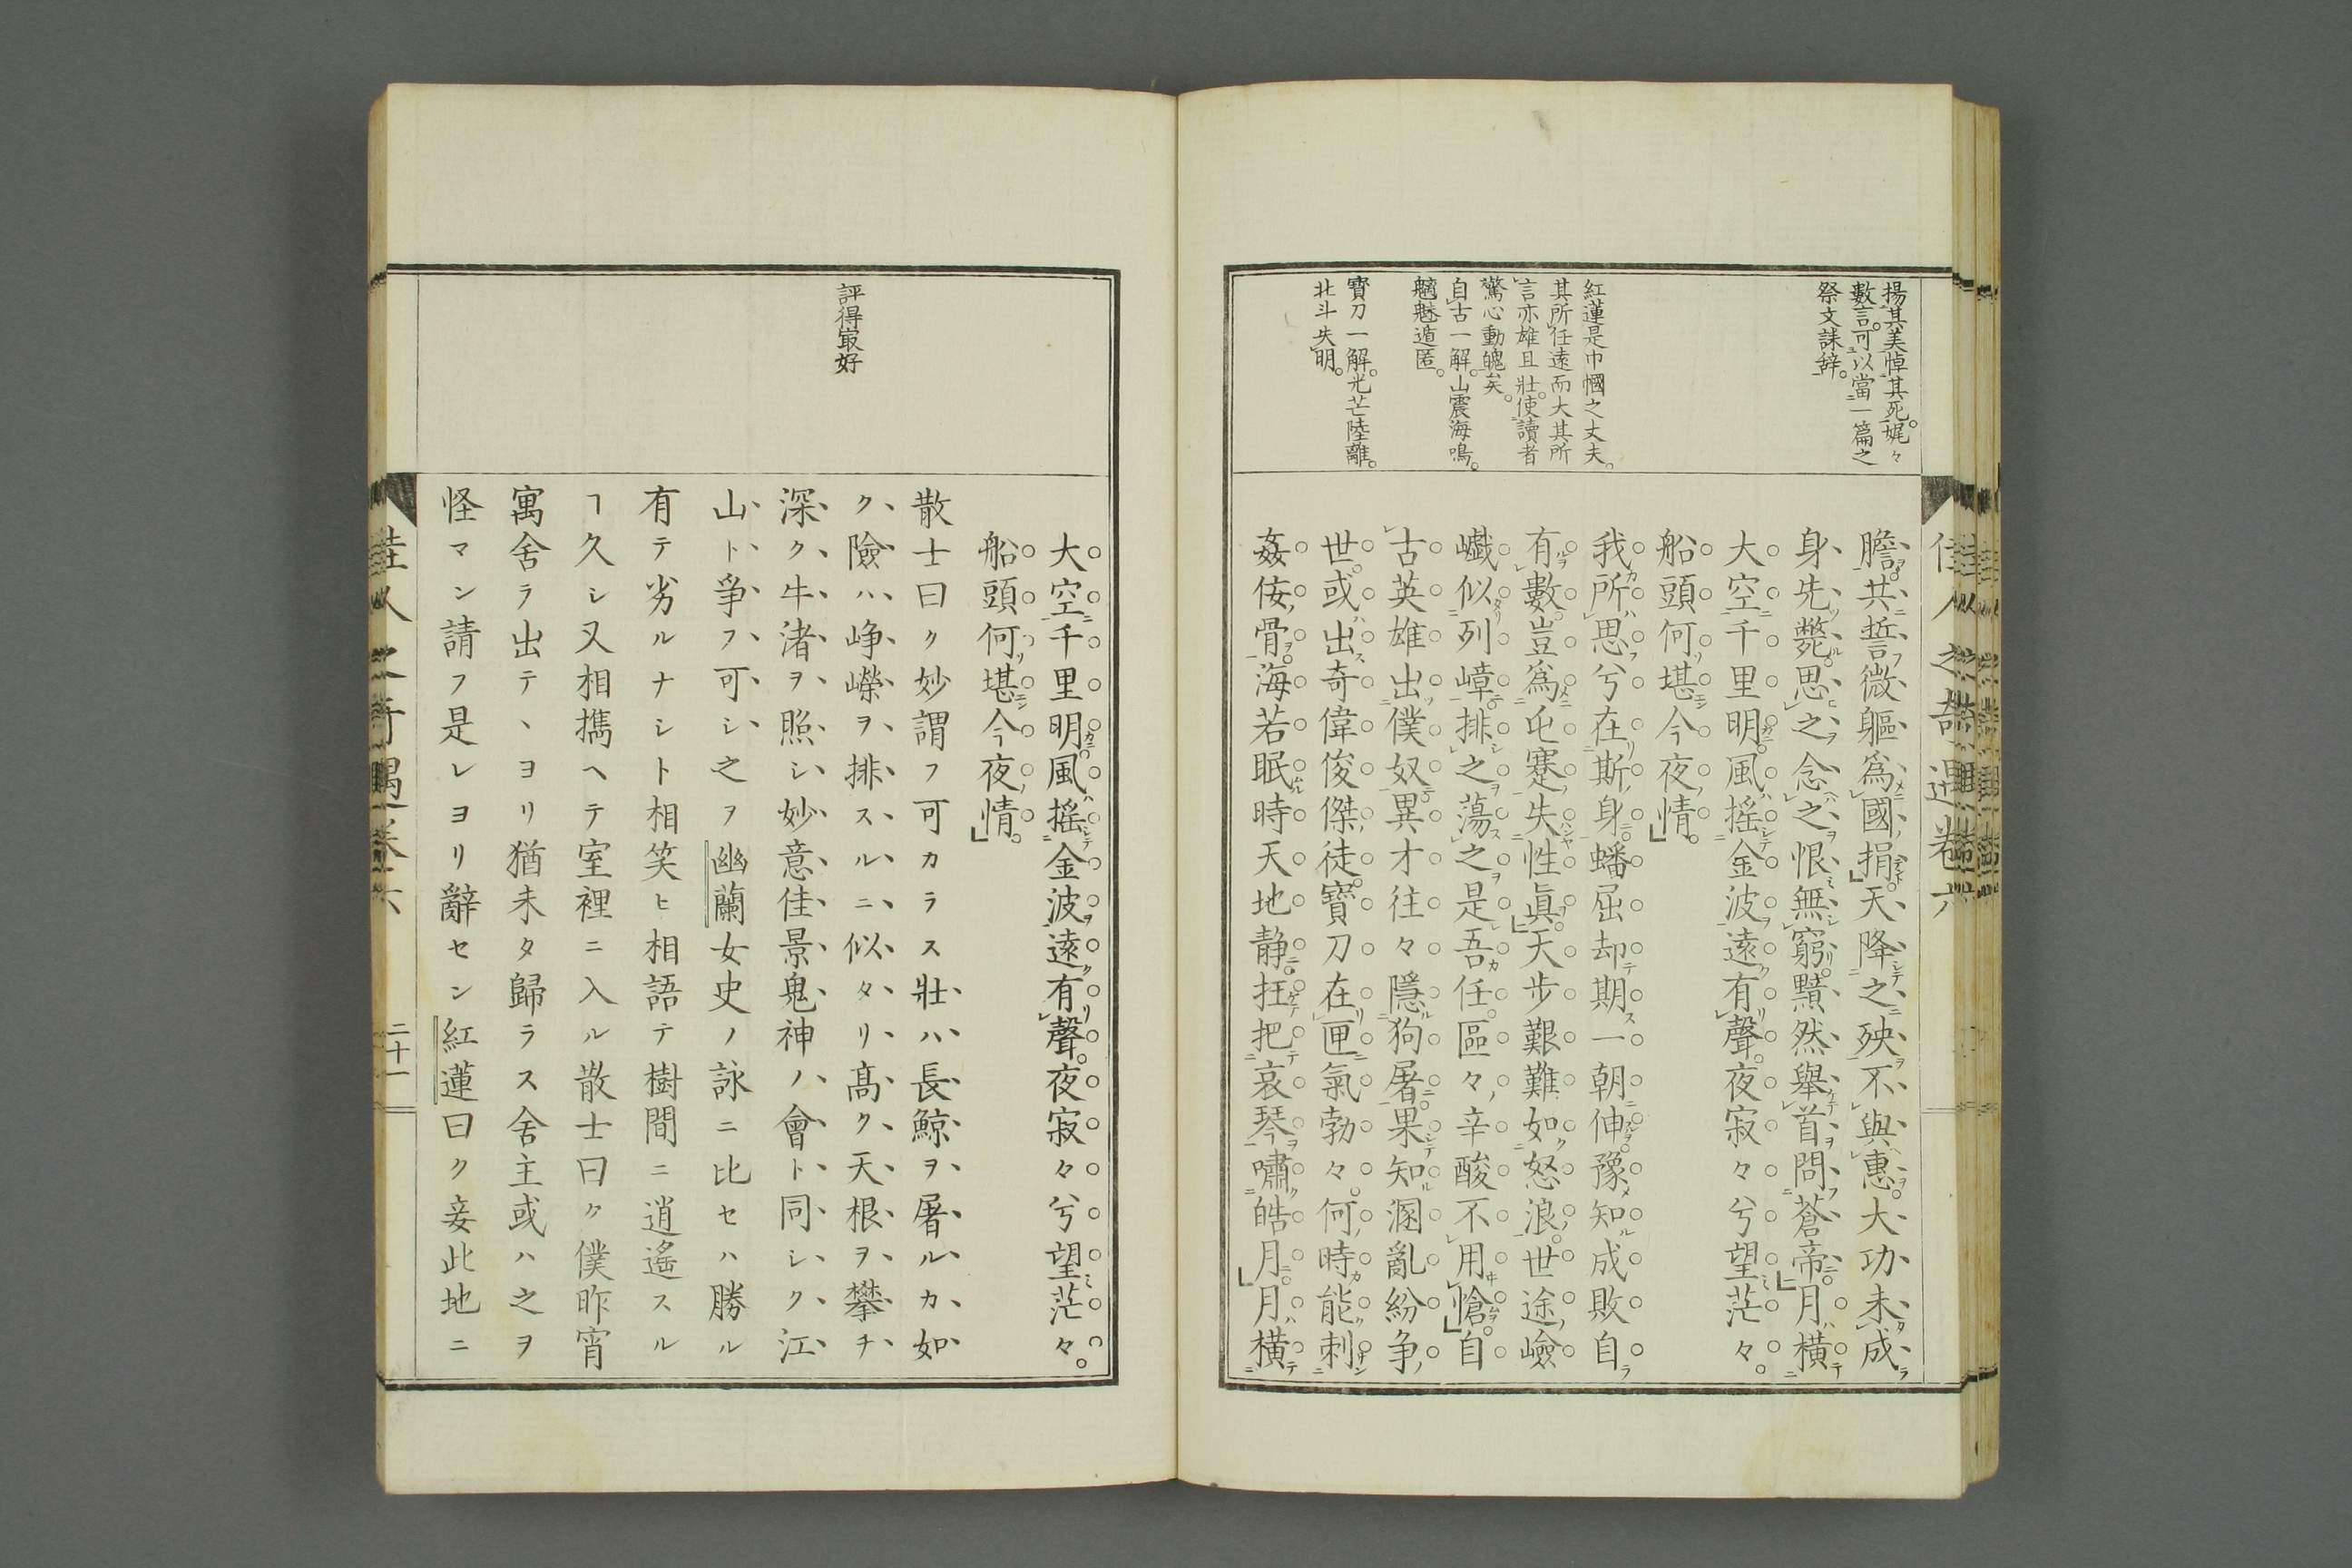 揚其美悼其死。娓々
數言。可以當一篇之
祭文誄辞。
紅蓮是巾幗之丈夫。
其所任遠而大其所
言亦雄且壯。使讀者
驚心動魄矣。
自古一解。山震海鳴。
魑魅遁匿。
寳刀一解。光芒陸離。
北斗失明。
佳人之奇遇卷六
膽共誓微軀爲國捐。天降之殃不與惠。大功未成
身先斃。思之念之恨無窮。黯然擧首問蒼帝。月横
大空千里明。風搖金波遠有聲。夜寂々兮望茫々。
船頭何堪今夜情。
我所思兮在斯身。蟠屈却期一朝伸。豫知成敗自
有數。豈爲屯蹇失性眞。天步艱難如怒浪。世途嶮
巇似列嶂。排之蕩之是吾任。區々辛酸不用愴。自
古英雄出僕奴。異才往々隱狗屠。果知溷亂紛争
世。或出奇偉俊傑徒。寳刀在匣氣勃々。何時能刺
姦佞骨。海若眠時天地静。抂把哀琴嘯皓月。月横
評得最好
大空千里明。風搖金波遠有聲。夜寂々兮望茫々。
船頭何堪今夜情。
散士曰ク妙謂フ可カラス壯ハ長鯨ヲ屠ルカ如
ク險ハ崢嶸ヲ排スルニ似タリ髙ク天根ヲ攀チ
深ク牛渚ヲ照シ妙意佳景鬼神ノ會ト同シク江
山ト争フ可シ之ヲ幽蘭女史ノ詠ニ比セハ勝ル
有テ劣ルナシト相笑ヒ相語テ樹間ニ逍遙スル
ヿ久シ又相攜ヘテ室裡ニ入ル散士曰ク僕昨宵
寓舍ヲ出テ、ヨリ猶未タ歸ラス舍主或ハ之ヲ
怪マン請フ是レヨリ辭セン紅蓮曰ク妾此地ニ
佳人之奇遇卷六
二十一